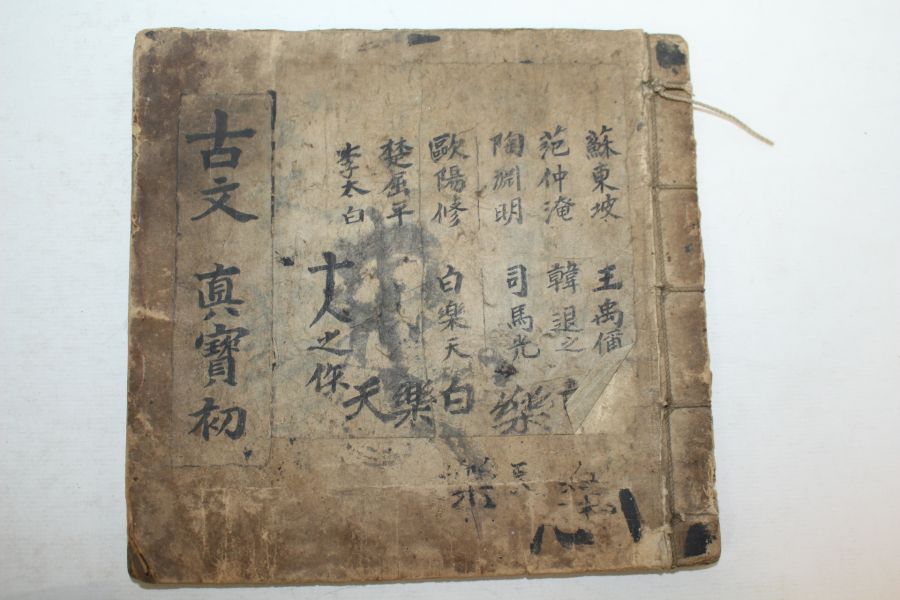 蘇東坡 王禹偁
范仲淹 韓退之
陶淵明 司馬光 樂
歐陽修 白樂天 白
楚屈平 樂
李太白 天
十人之保
古文 真寶初